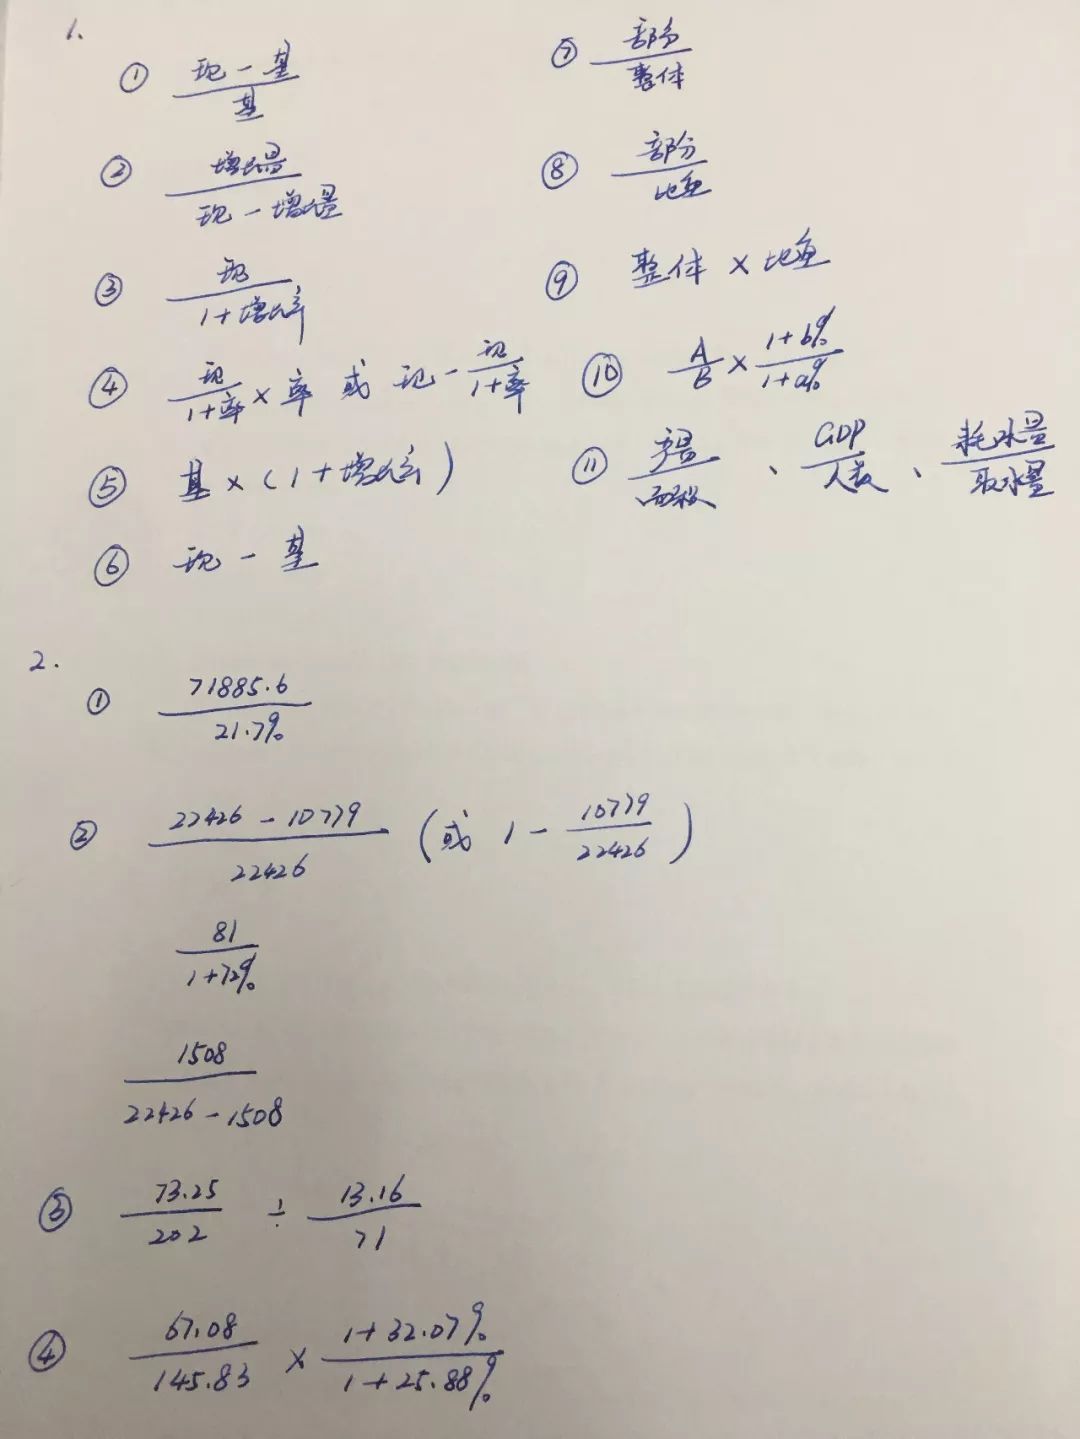 1.
① (现-基)/基
② 增长量/(现-增长量)
③ 现/(1+增长率)
④ 现/(1+率)×率 或 现-现/(1+率)
⑤ 基×(1+增长率)
⑥ 现-基
⑦ 部分/整体
⑧ 部分/比重
⑨ 整体×比重
⑩ A/B×(1+b%)/(1+a%)
⑪ 产量/面积、GDP/人数、耗水量/取水量
2.
① 71885.6/21.7%
② (22426-10779)/22426 (或 1-10779/22426)
81/(1+72%)
1508/(22426-1508)
③ 73.25/202÷13.16/71
④ 67.08/145.83×(1+32.07%)/(1+25.88%)